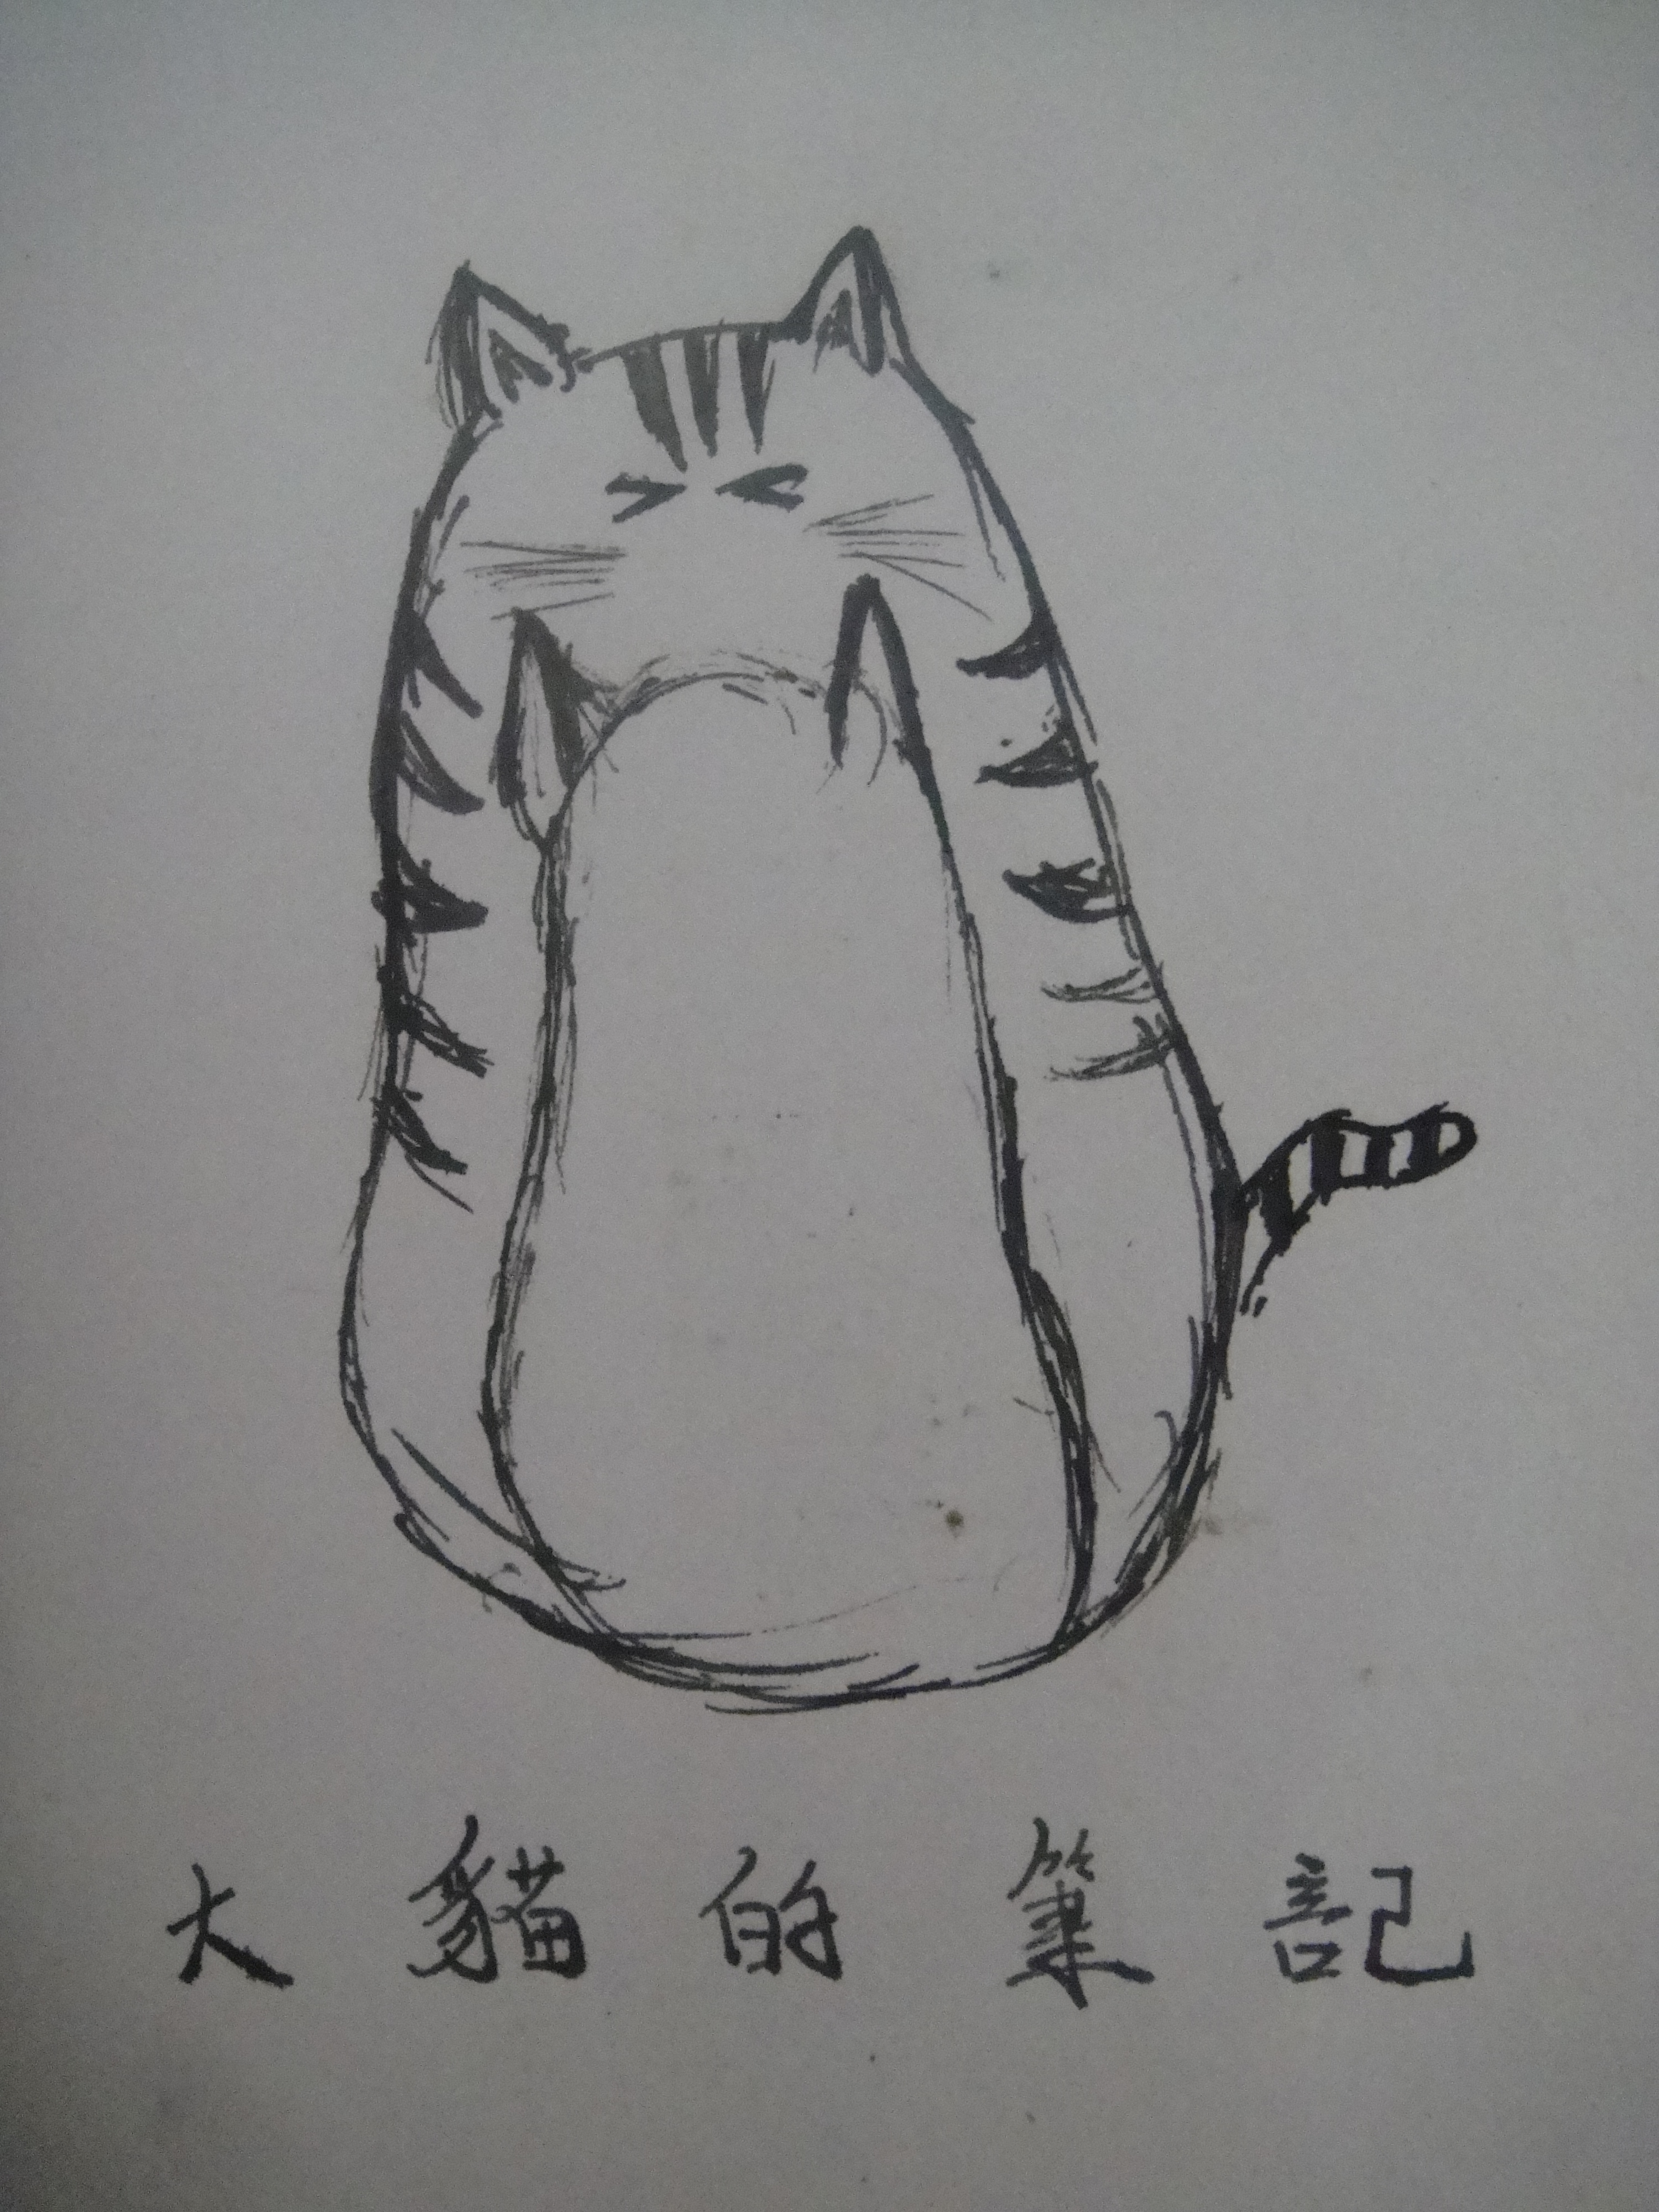 大貓的筆記